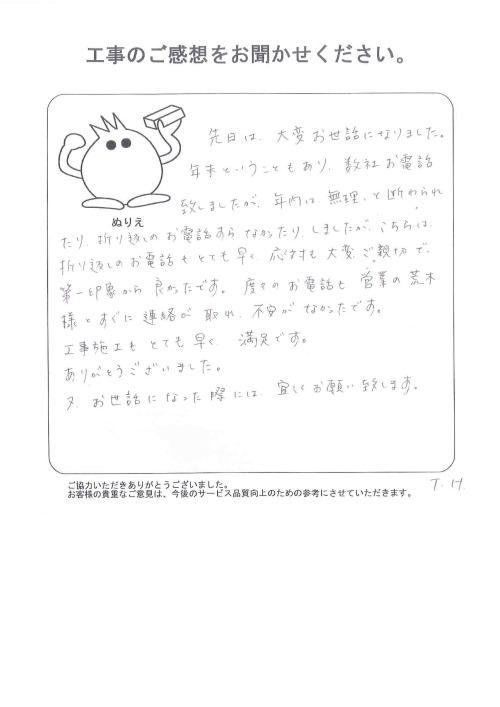 工事のご感想をお聞かせください。
先日は、大変お世話になりました。
年末ということもあり、数社お電話
致しましたが、年内は無理、と断わられ
ぬりえ
たり、折り返しのお電話すらなかったり、しましたが、こちらは、
折り返しのお電話もとても早く、応対も大変ご親切で、
第一印象から良かったです。度々のお電話も営業の荒木
様とすぐに連絡が取れ、不安がなかったです。
工事施工もとても早く、満足です。
ありがとうございました。
又、お世話になった際には、宜しくお願い致します。
ご協力いただきありがとうございました。
お客様の貴重なご意見は、今後のサービス品質向上のための参考にさせていただきます。
T.H.